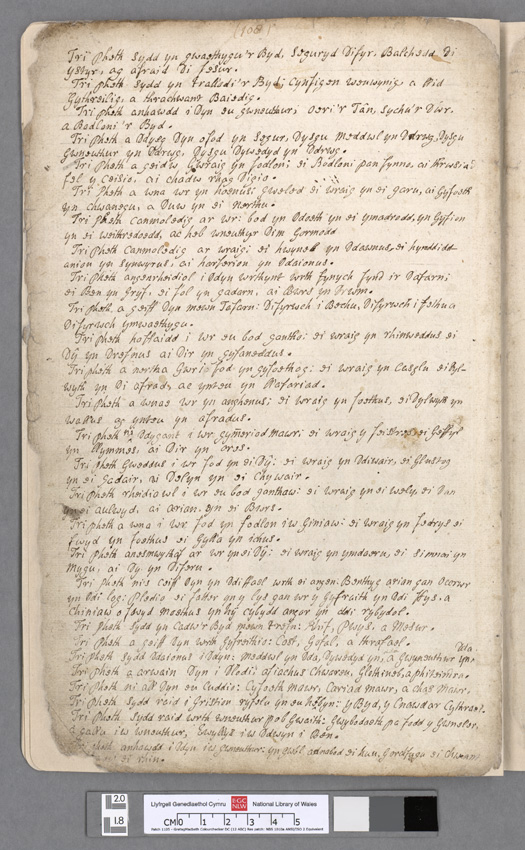 (108)
Tri Pheth sydd yn gwaethygu'r Byd, Seguryd Difyr, Balchedd Di
ystyr, ag afraid Di fesur.
Tri pheth sydd yn trallodi'r Byd; Cynfigen wenwynig, a Llid
a thrachwant
Tri pheth anhawdd i Dyn eu gwneuthur; Oeri'r Tân, Sychu'r Dwr,
a Bodloni'r Byd.
Tri Pheth a Ddysg Dyn ofod yn Segur, Dysgu Meddwl yn Ddrwg, Dysgu
Gwneuthur yn Ddrwg, Dysgu Dywedyd yn Ddrwg.
Tri Pheth a geidw Gwraig yn fodlon; ei Bodloni pan fynne, ai
fel y Ceisie, ai chadw rhag Digio.
Tri Pheth a wna wr yn hoenus; gweled ei wraig yn ei garu, ai Gyfoeth
yn chwanegu, a Duw yn ei Northu.
Tri Pheth Canmoledig ar wr; bod yn Ddoeth yn ei ymadrodd, yn Gyfion
yn ei weithredoedd, ac heb wneuthyr Dim Gormodd
Tri Pheth Canmoledig ar wraig; ei hwyneb yn Ddaionus, ei
yn Synwyrol, ai yn Ddaionus.
Tri Pheth angenrheidiol i Ddyn wrth fynych fynd ir Dafarn;
ei Ben yn Gryf, ei fol yn gadarn, ai Bwrs yn Drwm.
Tri Pheth a geiff Dyn mewn Tafarn: Difyrwch i Bechu, Difyrwch i
Difyrwch ymwaethygu.
Tri Pheth hoffaidd i wr eu bod gantho; ei wraig yn rhinweddus ei
Dŷ yn Drefnus ai Dir yn gyfaneddus.
Tri pheth a northa Gwr i fod yn gyfoethog; ei wraig yn Casglu ei
yn Di afrad, ac ynteu yn Wafariad.
Tri Pheth a wnae wr yn anghenus; ei wraig yn foethus, ei Dylwyth yn
wallus ag ynteu yn afradus.
Tri Pheth ni Ddygant i wr gymeriad Mawr; ei wraig y feistres, ei Geffyl
yn llymmes, ai Dir yn ores.
Tri Pheth Gweddus i wr fod yn ei Dŷ; ei wraig yn Ddiwair, ei Glustog
yn ei Gadair, ai Delyn yn ei Chywair.
Tri Pheth rheidiawl i wr eu bod ganthaw; ei wraig yn ei wely, ei Dan
ar ei aulwyd, ai arian yn ei Bwrs.
Tri pheth a wna i wr fod yn fodlon iw Giniaw; ei wraig yn fedrys ei
fwyd yn foethus ei Gylla yn ichus.
Tri Pheth anesmwythaf ar wr yn ei Dŷ; ei wraig yn ymdaeru, ei Simnai yn
Mygu, ai Dy yn Diferu.
Tri Pheth nis Ceiff Dyn yn Ddiffael wrth ei angen: Benthyg arian gan Ocorwr
yn Ddi log; Pledio ei fatter yn y lys gan wr y Gyfraith yn Ddi ffys, a
Chiniaw o fwyd Moethus yn nhy Cybydd angor yn ddi rybydd.
Tri Pheth Sydd yn Cadw'r Byd mewn trefn: Rhif, Pwys, a Mesur.
Tri Pheth a geiff Dyn wrth Gyfreithio: Cost, Gofal, a thrafael.
Tri Pheth Sydd Ddaionus i Ddyn: Meddwl yn Dda, Dywedyd yn, a Gwneuthur yn. Dda
Tri Pheth a arwain Dyn i Dlodi; afiachus Chwaren, Glothineb, a phuteinien.
Tri Pheth ni all Dyn eu Cuddio; Cyfoeth Mawr, Cariad Mawr, a Chas Mawr.
Tri Pheth Sydd raid i Gristien ryfela yn eu herbyn: y Byd, y Cnawd ar Cythraul.
Tri Pheth Sydd raid wrth wneuthur pob Gwaith: Gwybodaeth pa fodd y Gwneler,
a gallu iw wneuthur, Ewyllys iw Ddwyn i Ben.
Tri pheth anhawdd i Ddyn iw Gwneuthur: yn gwbl adnabod ei hun, Gorchfygu ei Chwant
ei rhin.
Llyfrgell Genedlaethol Cymru
National Library of Wales
2.0
1.8
CM 0 1 2 3 4 5